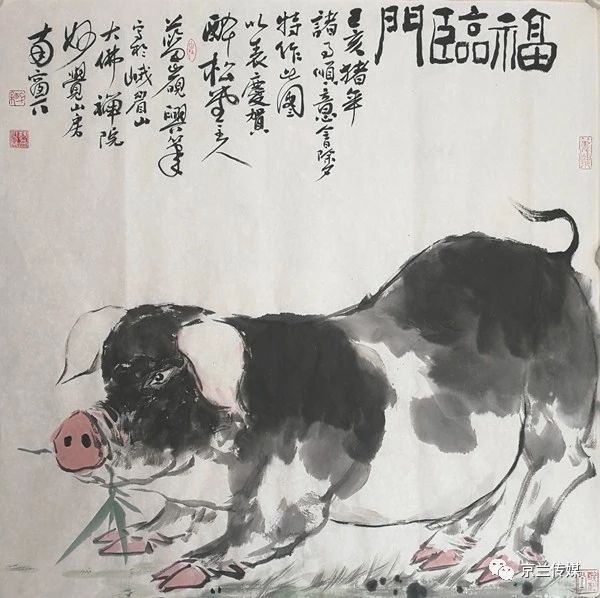 福臨門
己亥猪年
諸事順意會除夕
特作此圖
以表慶賀
醉松堂主人
藍嵐興筆
寫於峨眉山
大佛禪院
妙覺山房
南窗下
京兰传媒